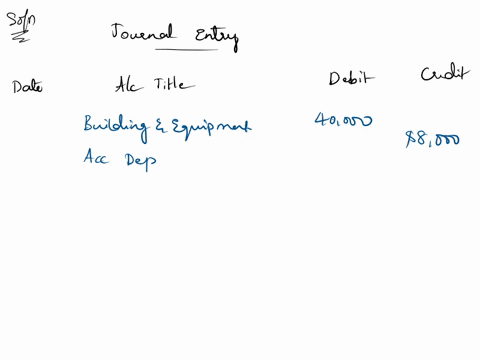 Soln
Journal Entry
Date A/c Title Debit Credit
Building & Equipment 40,000
Acc Dep $8,000